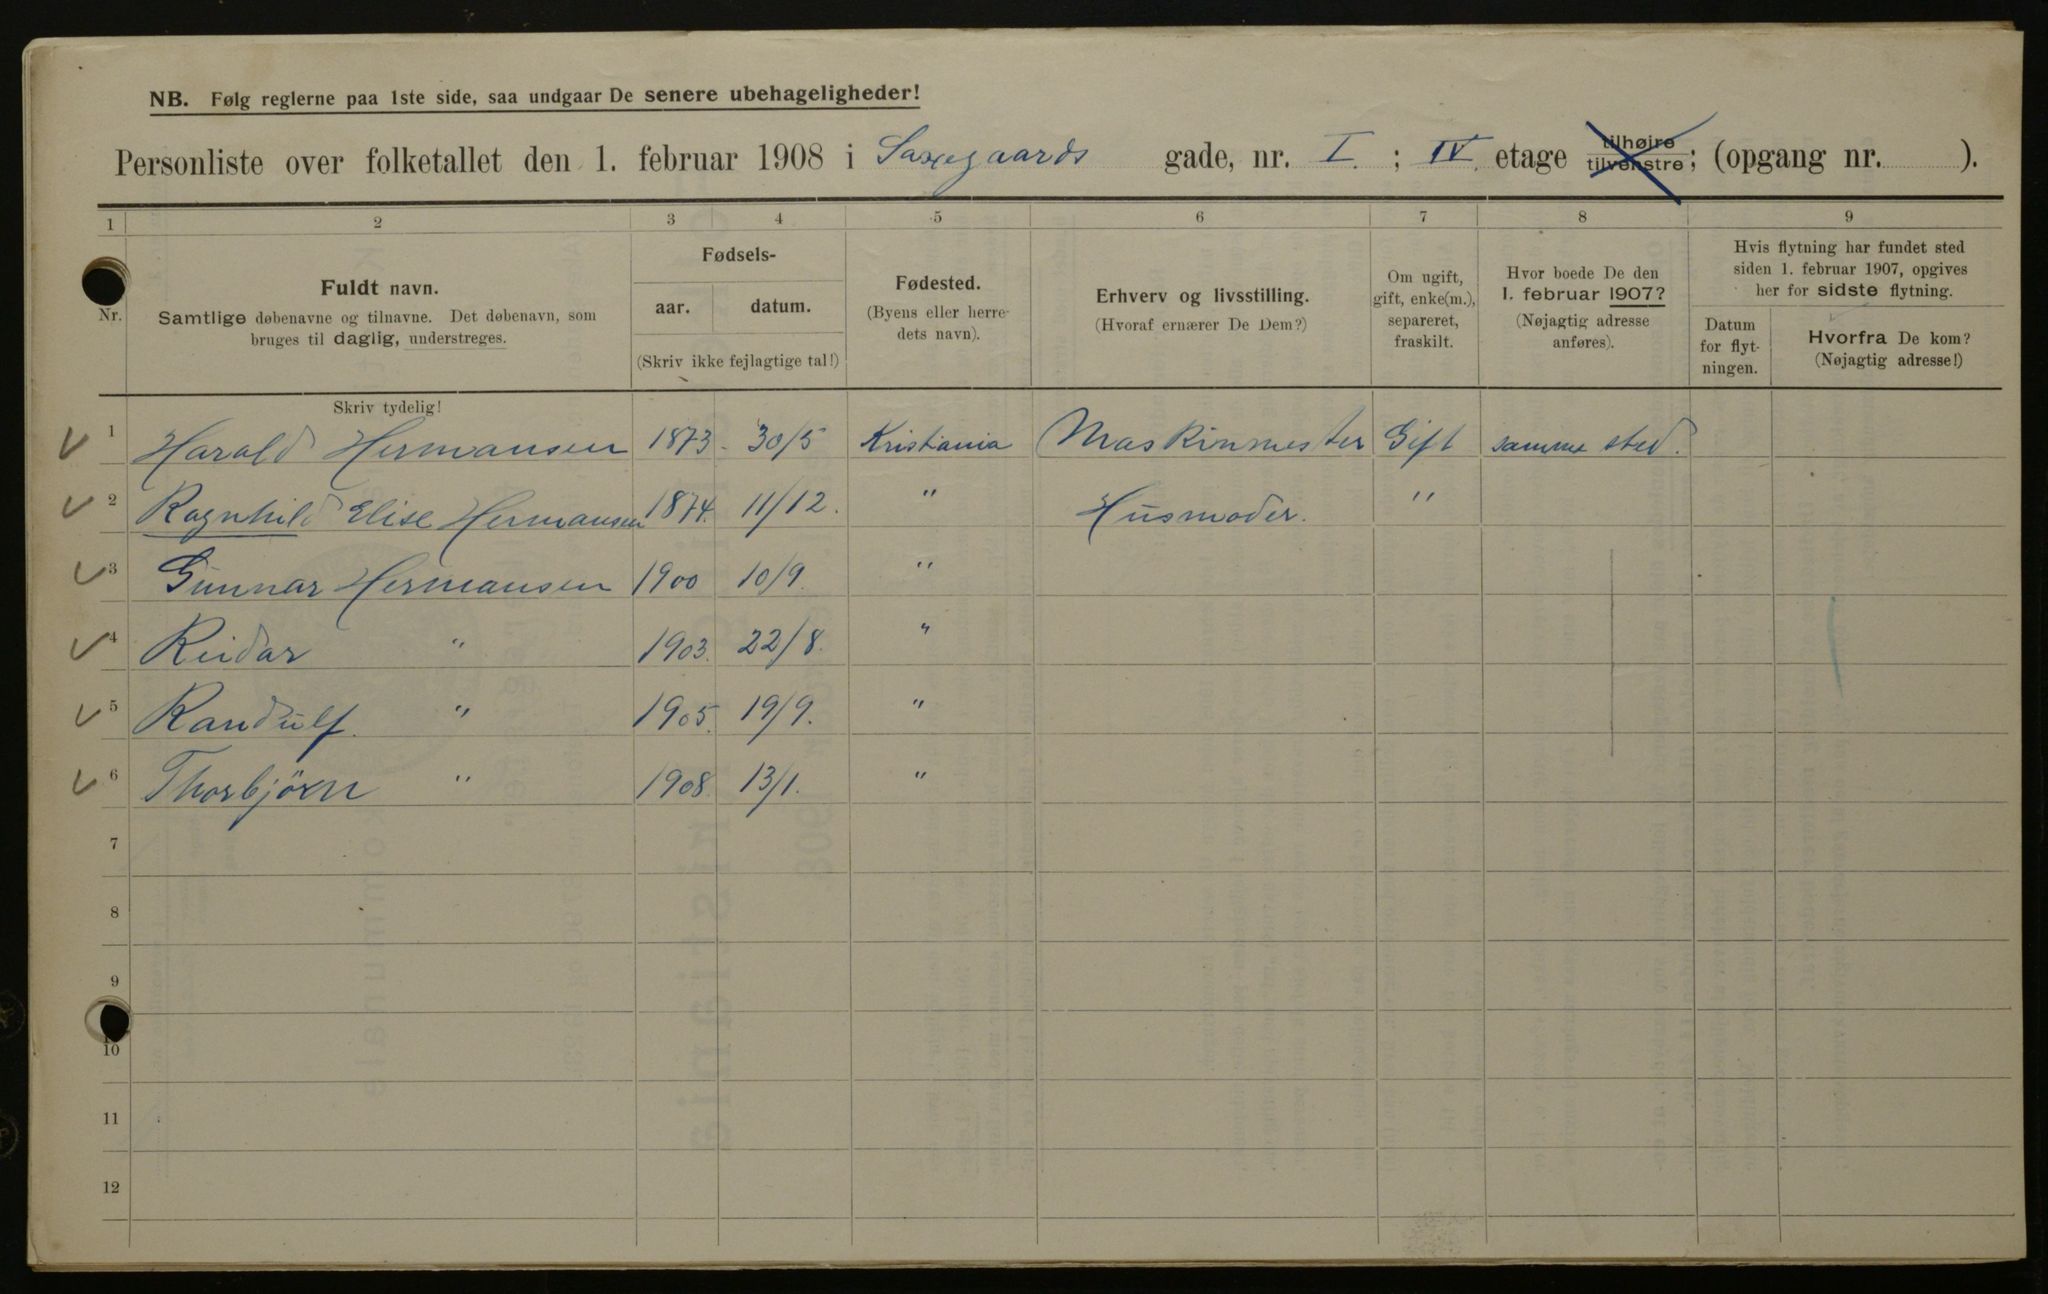 NB. Følg reglerne paa 1ste side, saa undgaar De senere ubehageligheder!
Personliste over folketallet den 1. februar 1908 i Saxegaards gade, nr. I. ; IV. etage tilhøire tilvenstre; (opgang nr. ).
1 2 3 4 5 6 7 8 9
Nr.
Fuldt navn.
Samtlige døbenavne og tilnavne. Det døbenavn, som
bruges til daglig, understreges.
Fødsels-
aar. datum.
(Skriv ikke fejlagtige tal!)
Fødested.
(Byens eller herre-
dets navn).
Erhverv og livsstilling.
(Hvoraf ernærer De Dem?)
Om ugift,
gift, enke(m.),
separeret,
fraskilt.
Hvor boede De den
1. februar 1907?
(Nøjagtig adresse
anføres).
Hvis flytning har fundet sted
siden 1. februar 1907, opgives
her for sidste flytning.
Datum
for flyt-
ningen.
Hvorfra De kom?
(Nøjagtig adresse!)
Skriv tydelig!
1 Harald Hermansen 1873 - 30/5 Kristiania Maskinmester Gift samme sted.
2 Ragnhild Elise Hermansen 1874. 11/12. " Husmoder. "
3 Gunnar Hermansen 1900 10/9. "
4 Reidar " 1903. 22/8. "
5 Randulf. " 1905. 19/9. "
6 Thorbjörn " 1908. 13/1. "
7
8
9
10
11
12